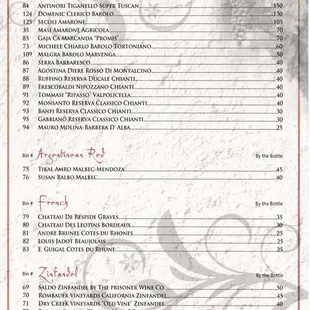 84 Antinori Tiganello Super Tuscan 150
124 Domenic Clerico Barolo 130
125 Secoli Amarone 105
35 Masi Amarone Agricola 70
85 Gaja Ca Marcanda "Promis" 70
73 Michele Chiarlo Barolo Tortoniano 60
110 Malgra Barolo Marvenga 50
86 Serra Barbaresco 40
87 Agostina Diere Rosso Di Montalcino 40
88 Ruffino Reserva Ducale Chianti 40
89 Frescobaldi Nipozzano Chianti 40
91 Tommasi "Ripasso" Valpolicella 40
92 Monsanto Reserva Classico Chianti 40
93 Banfi Reserva Classico Chianti 40
95 Gabbiano Reserva Classico Chianti 40
94 Mauro Molina-Barbera D' Alba 25
Bin # Argentinean Red By the Bottle
75 Tikal Amro Malbec-Mendoza 45
76 Susan Balbo Malbec 40
Bin # French By the Bottle
79 Chateau De Respide Graves 35
80 Chateau Des Leotins Bordeaux 30
81 Andre Brunel Cotes du Rhones 35
82 Louis Jadot Beaujolais 25
83 E. Guigal Cotes du Rhone 35
Bin # Zinfandel By the Bottle
69 Saldo Zinfandel by The Prisoner Wine Co. 50
70 Rombauer Vineyards California Zinfandel 45
71 Dry Creek Vineyards "Old Vine" Zinfandel 40